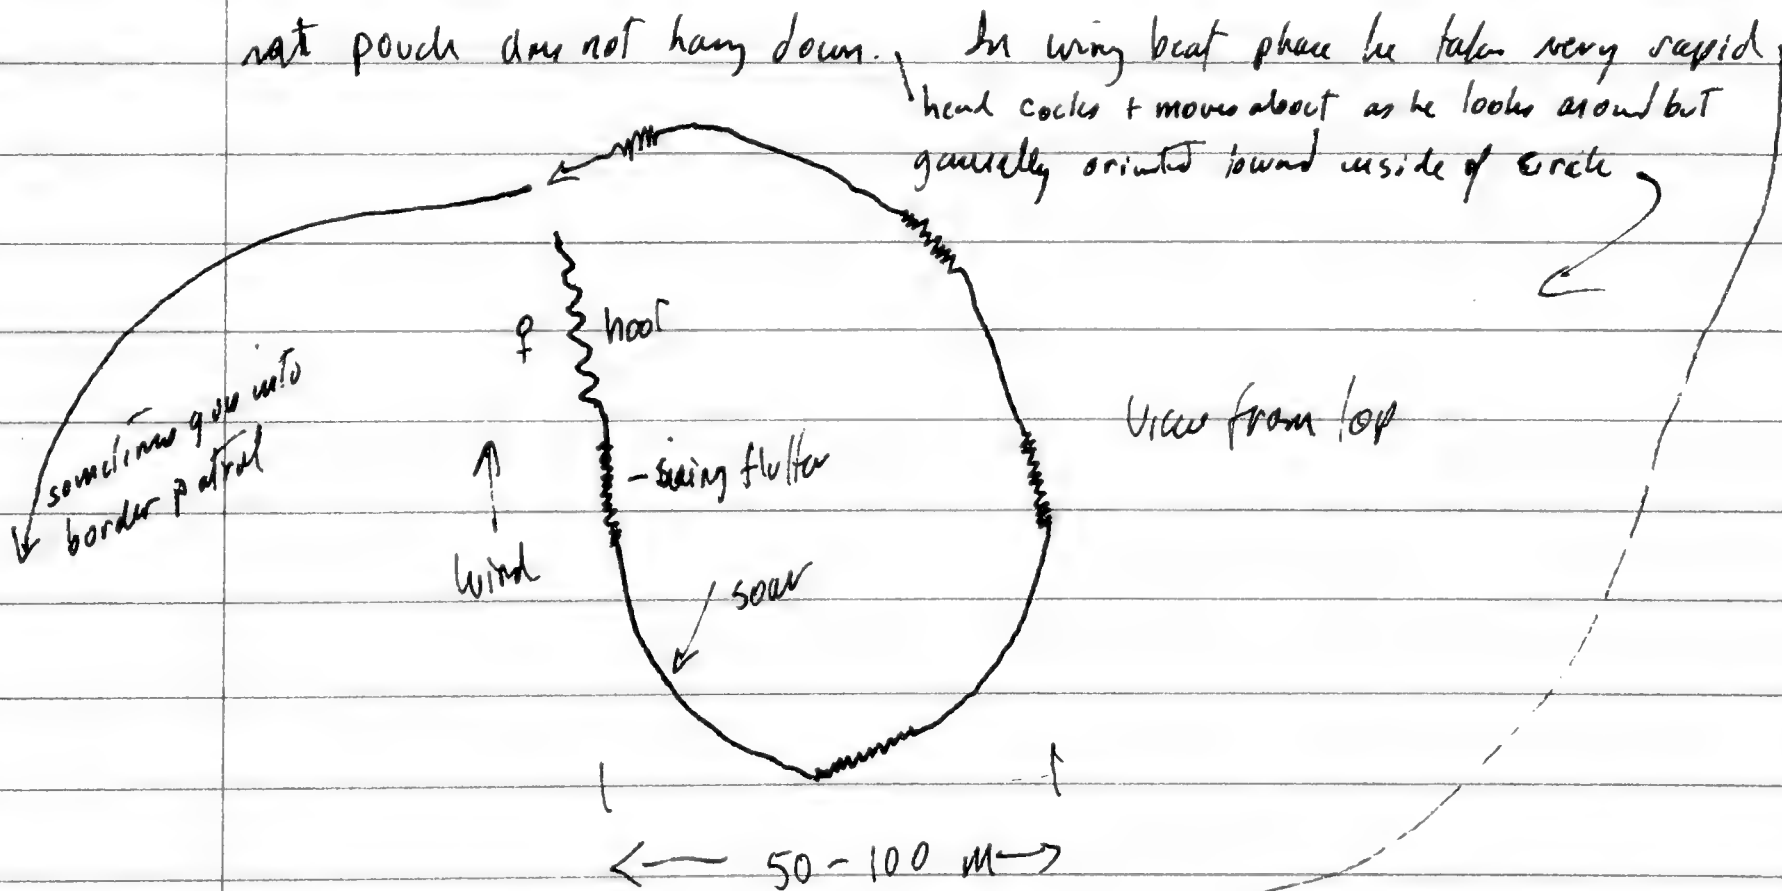 pouch does not hang down. In wing beat phase he takes very rapid
head cocks + moves about as he looks around but
generally oriented toward inside of circle
♀ hoot
sometimes goes into
border patrol
wind
flutter
View from top
soar
50-100 M